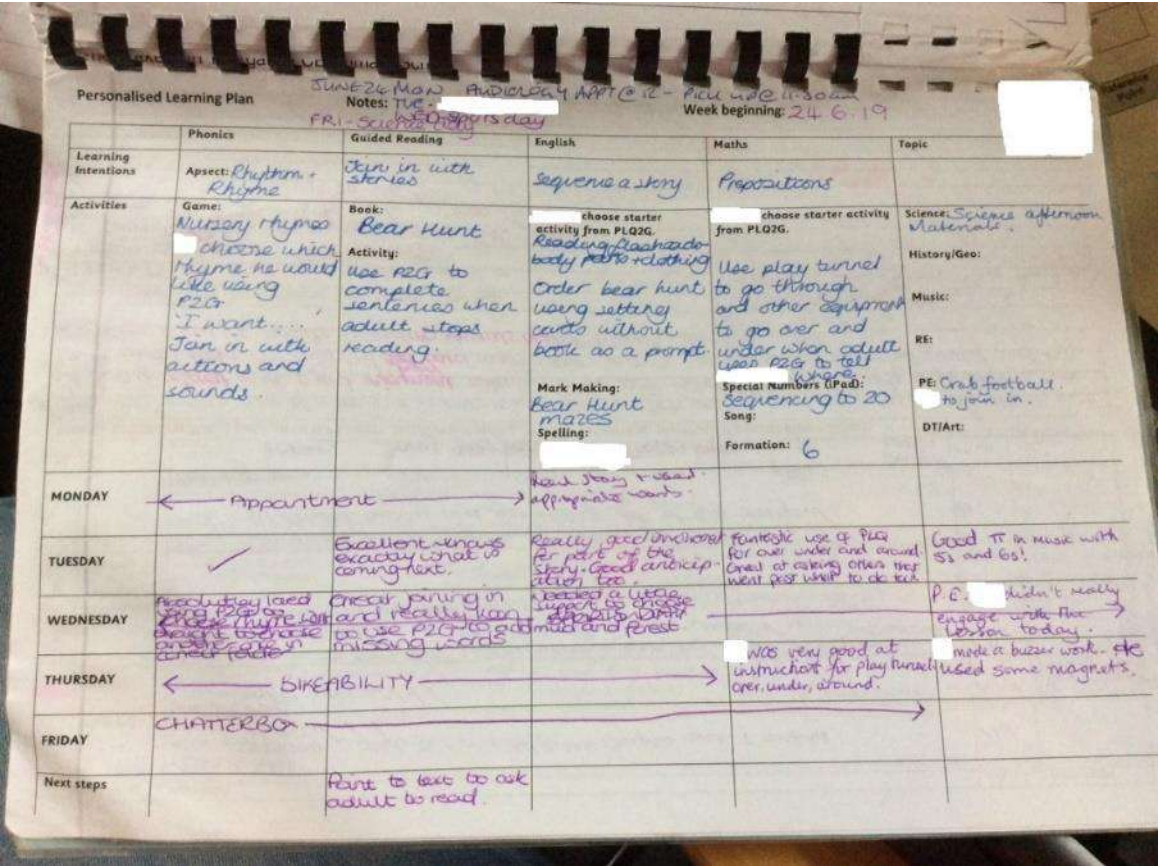 JUNE 24 MON AUDIOLOGY APPT @ 12 - PICK UP @ 11.30am
Personalised Learning Plan
Notes: TUE -
WED sports day
Week beginning: 24.6.19
FRI - Science day
Phonics
Guided Reading
English
Maths
Topic
Learning
Intentions
Apsect: Rhythm +
Rhyme
Join in with
stories
Sequence a story
Prepositions
Activities
Game:
Nursery rhymes
choose which
rhyme he would
like using
P2G
'I want....
Join in with
actions and
sounds.
Book:
Bear Hunt
Activity:
Use P2G to
complete
sentences when
adult stops
reading.
choose starter
activity from PLQ2G.
Reading flashcards-
body parts + clothing
Order bear hunt
using setting
cards without
book as a prompt.
Mark Making:
Bear Hunt
mazes
Spelling:
choose starter activity
from PLQ2G.
Use play tunnel
to go through
and other equipment
to go over and
under when adult
uses P2G to tell
where.
Special Numbers (iPad):
Sequencing to 20
Song:
Formation: 6
Science: Science afternoon
Materials.
History/Geo:
Music:
RE:
PE: Crab football.
to join in.
DT/Art:
MONDAY
Appointment
Read story + used
appropriate words.
TUESDAY
Excellent knows
exactly what is
coming next.
Really good
for part of the
story. Good anticip-
ation too.
Fantastic use of PLQ
for over under and around.
Great at asking others that
went past what to do too.
Good TT in music with
5s and 6s!
WEDNESDAY
Absolutely loved
using P2G to
choose rhyme
straight to choose
another one in
Great joining in
and really keen
to use P2G to add
missing words
Needed a little
support to choose
mud and forest
P.E. didn't really
engage with the
lesson today.
THURSDAY
BIKEABILITY
was very good at
instructions for play tunnel
over, under, around.
made a buzzer work. He
used some magnets.
FRIDAY
CHATTERBOX
Next steps
Point to text to ask
adult to read.